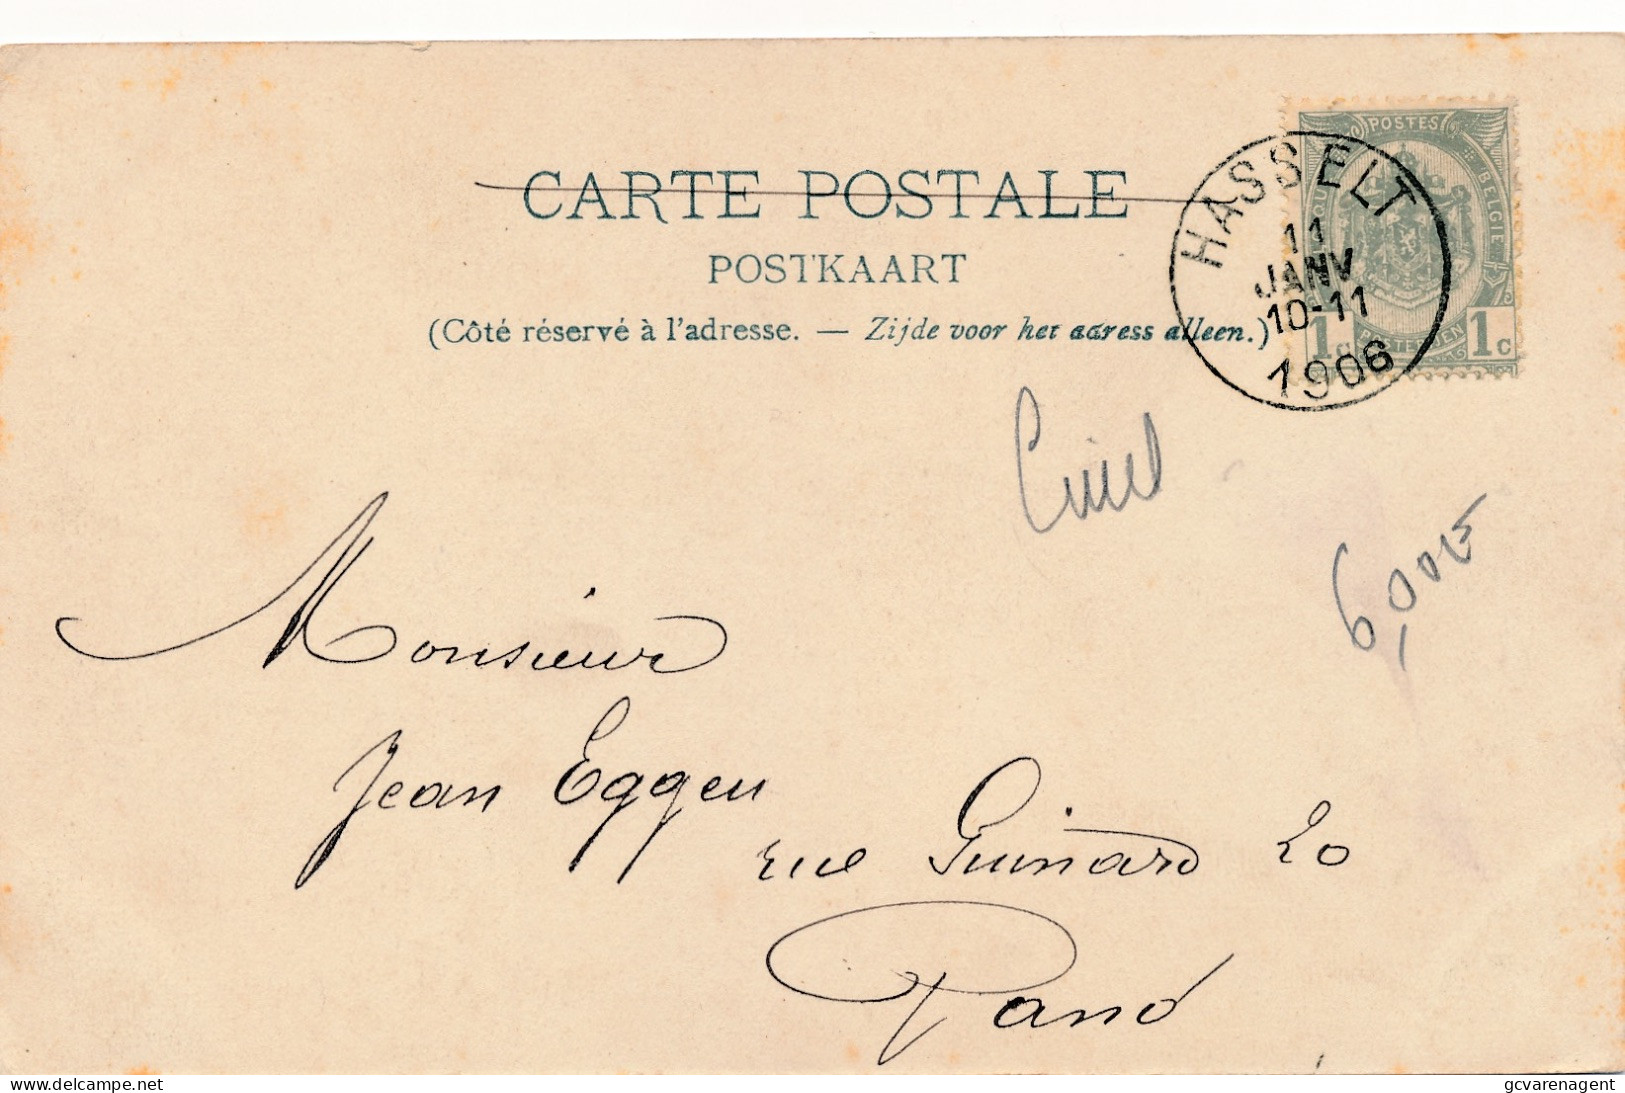 CARTE POSTALE
POSTKAART
(Côté réservé à l'adresse. — Zijde voor het adress alleen.)
POSTES
BELGIQUE BELGIE
POSTERIJEN
1c 1c
HASSELT
11
JANV
10-11
1906
6,00
Monsieur
Jean Eggen
rue Guinard 20
Gand
delcampe.net
gcvarenagent